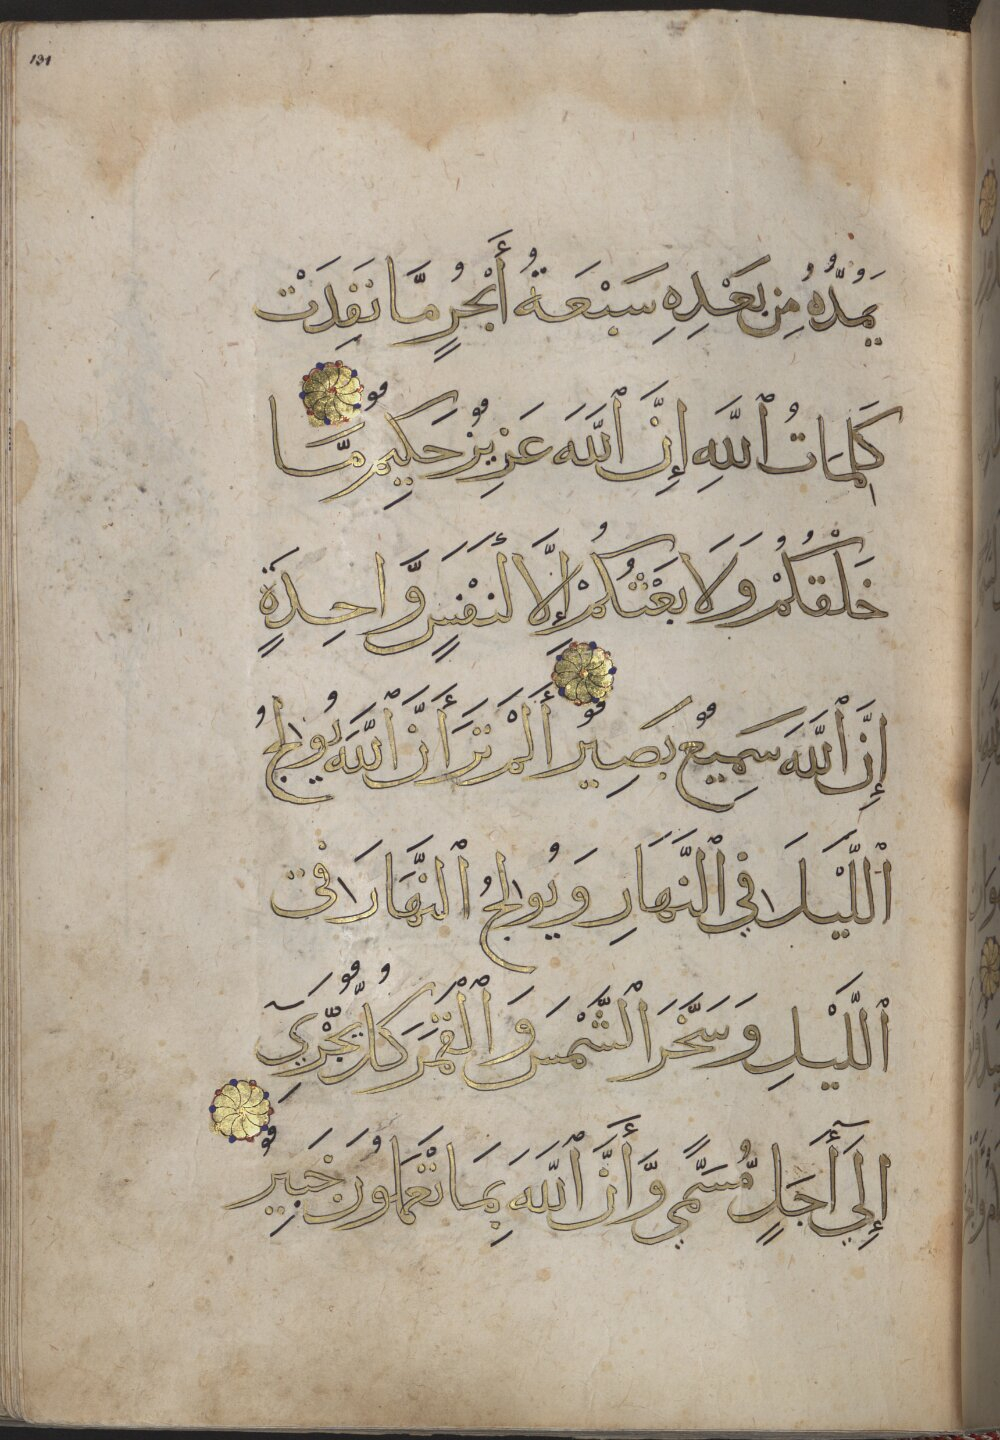 131
يَمُدُّهُ مِن بَعْدِهِ سَبْعَةُ أَبْحُرٍ مَّا نَفِدَتْ
كَلِمَاتُ ٱللَّهِ إِنَّ ٱللَّهَ عَزِيزٌ حَكِيمٌ مَّا
خَلْقُكُمْ وَلَا بَعْثُكُمْ إِلَّا كَنَفْسٍ وَّاحِدَةٍ
إِنَّ ٱللَّهَ سَمِيعٌ بَصِيرٌ أَلَمْ تَرَ أَنَّ ٱللَّهَ يُولِجُ
ٱللَّيْلَ فِي ٱلنَّهَارِ وَيُولِجُ ٱلنَّهَارَ فِي
ٱللَّيْلِ وَسَخَّرَ ٱلشَّمْسَ وَٱلْقَمَرَ كُلٌّ يَّجْرِي
إِلَى أَجَلٍ مُّسَمًّى وَّأَنَّ ٱللَّهَ بِمَا تَعْمَلُونَ خَبِيرٌ